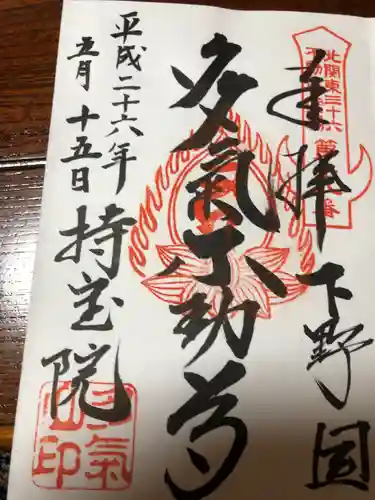 奉拝 下野国
北関東三十六
不動尊
番
多気不動尊
平成二十六年
五月十五日 持宝院
多氣
山印